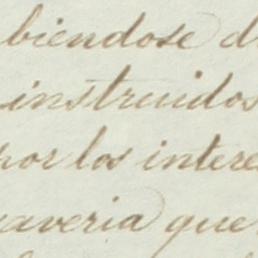 biéndose d
instruidos
por los intere
averia que